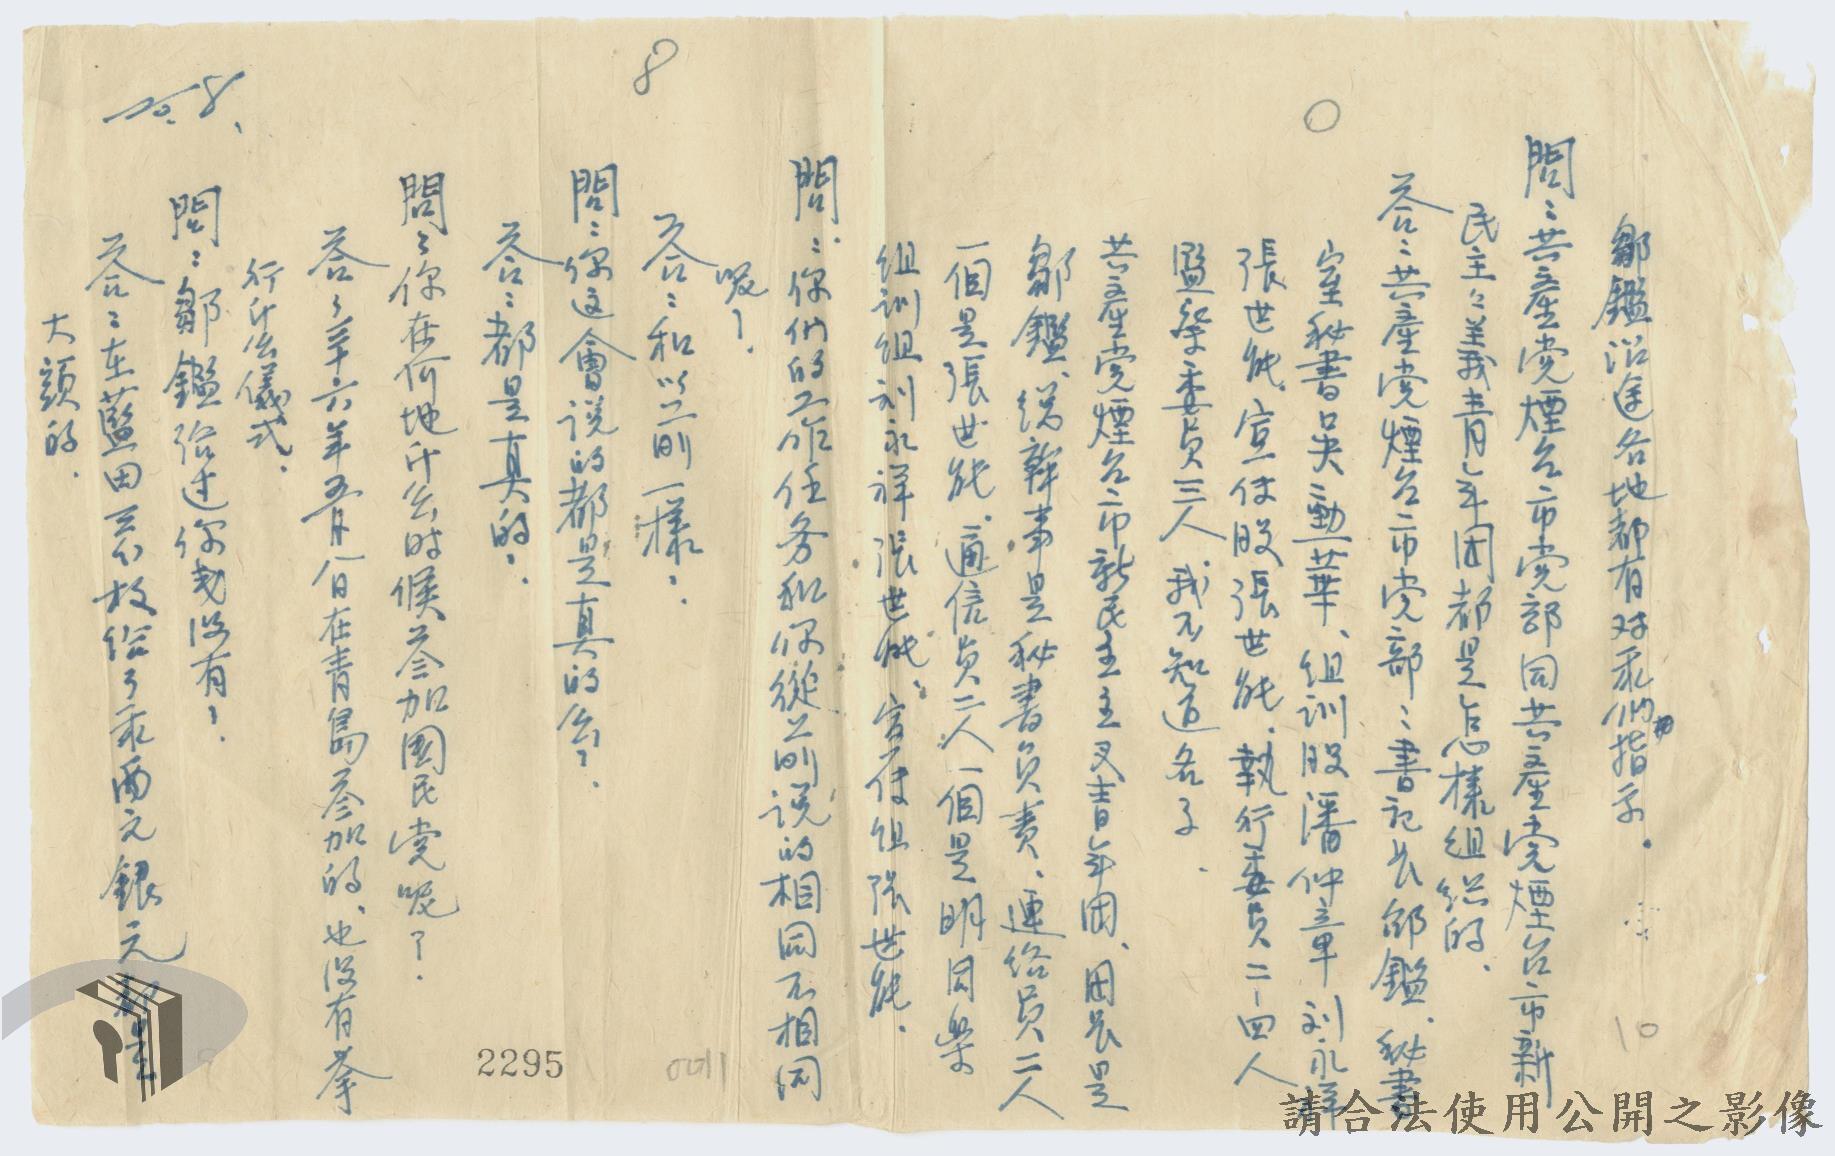 鄒鑑沿途各地都有对我們指示.
10
問:共產党煙台市党部同共產党煙台市新
民主々義青年团都是怎樣組織的、
荅:共產党煙台市党部:書記长鄒鑑、秘書
室秘書吴勳華、組訓股潘仲章 刘永祥
張世能、宣传股張世能、執行委員二-四人
監察委員三人 我不知道名子.
共產党煙台市新民主主义青年团、团长是
鄒鑑、總幹事是秘書負責、連络員二人
一個是張世能、通信員二人一個是明同樂
組訓組刘永祥張世能、宣传組張世能.
問:你們的工作任务和你從前説的相同不相同
呢?
8
荅:和以前一樣.
問:你这會說的都是真的么?
荅:都是真的.
問:你在何地什么时候叅加國民党呢?
荅:卅六年五月八日在青島叅加的、也沒有举
行什么儀式.
問:鄒鑑给过你或沒有?
荅:在藍田学校给了我両元銀元
大頭的.
8.
2295
請合法使用公開之影像